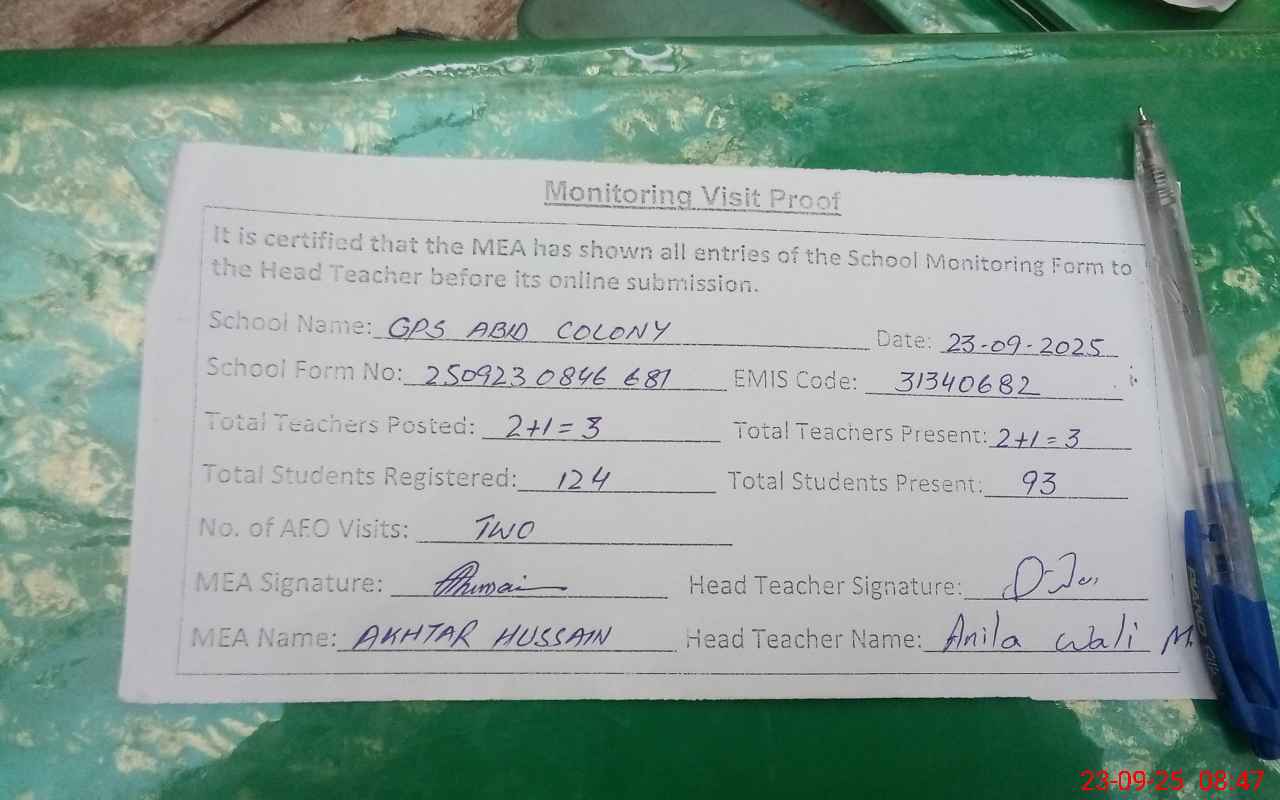 Monitoring Visit Proof
It is certified that the MEA has shown all entries of the School Monitoring Form to
the Head Teacher before its online submission.
School Name: GPS ABID COLONY Date: 23-09-2025
School Form No: 250923 0846 681 EMIS Code: 31340682
Total Teachers Posted: 2+1=3 Total Teachers Present: 2+1=3
Total Students Registered: 124 Total Students Present: 93
No. of AEO Visits: TWO
MEA Signature: Head Teacher Signature:
MEA Name: AKHTAR HUSSAIN Head Teacher Name: Anila Wali M.
23-09-25 08:47